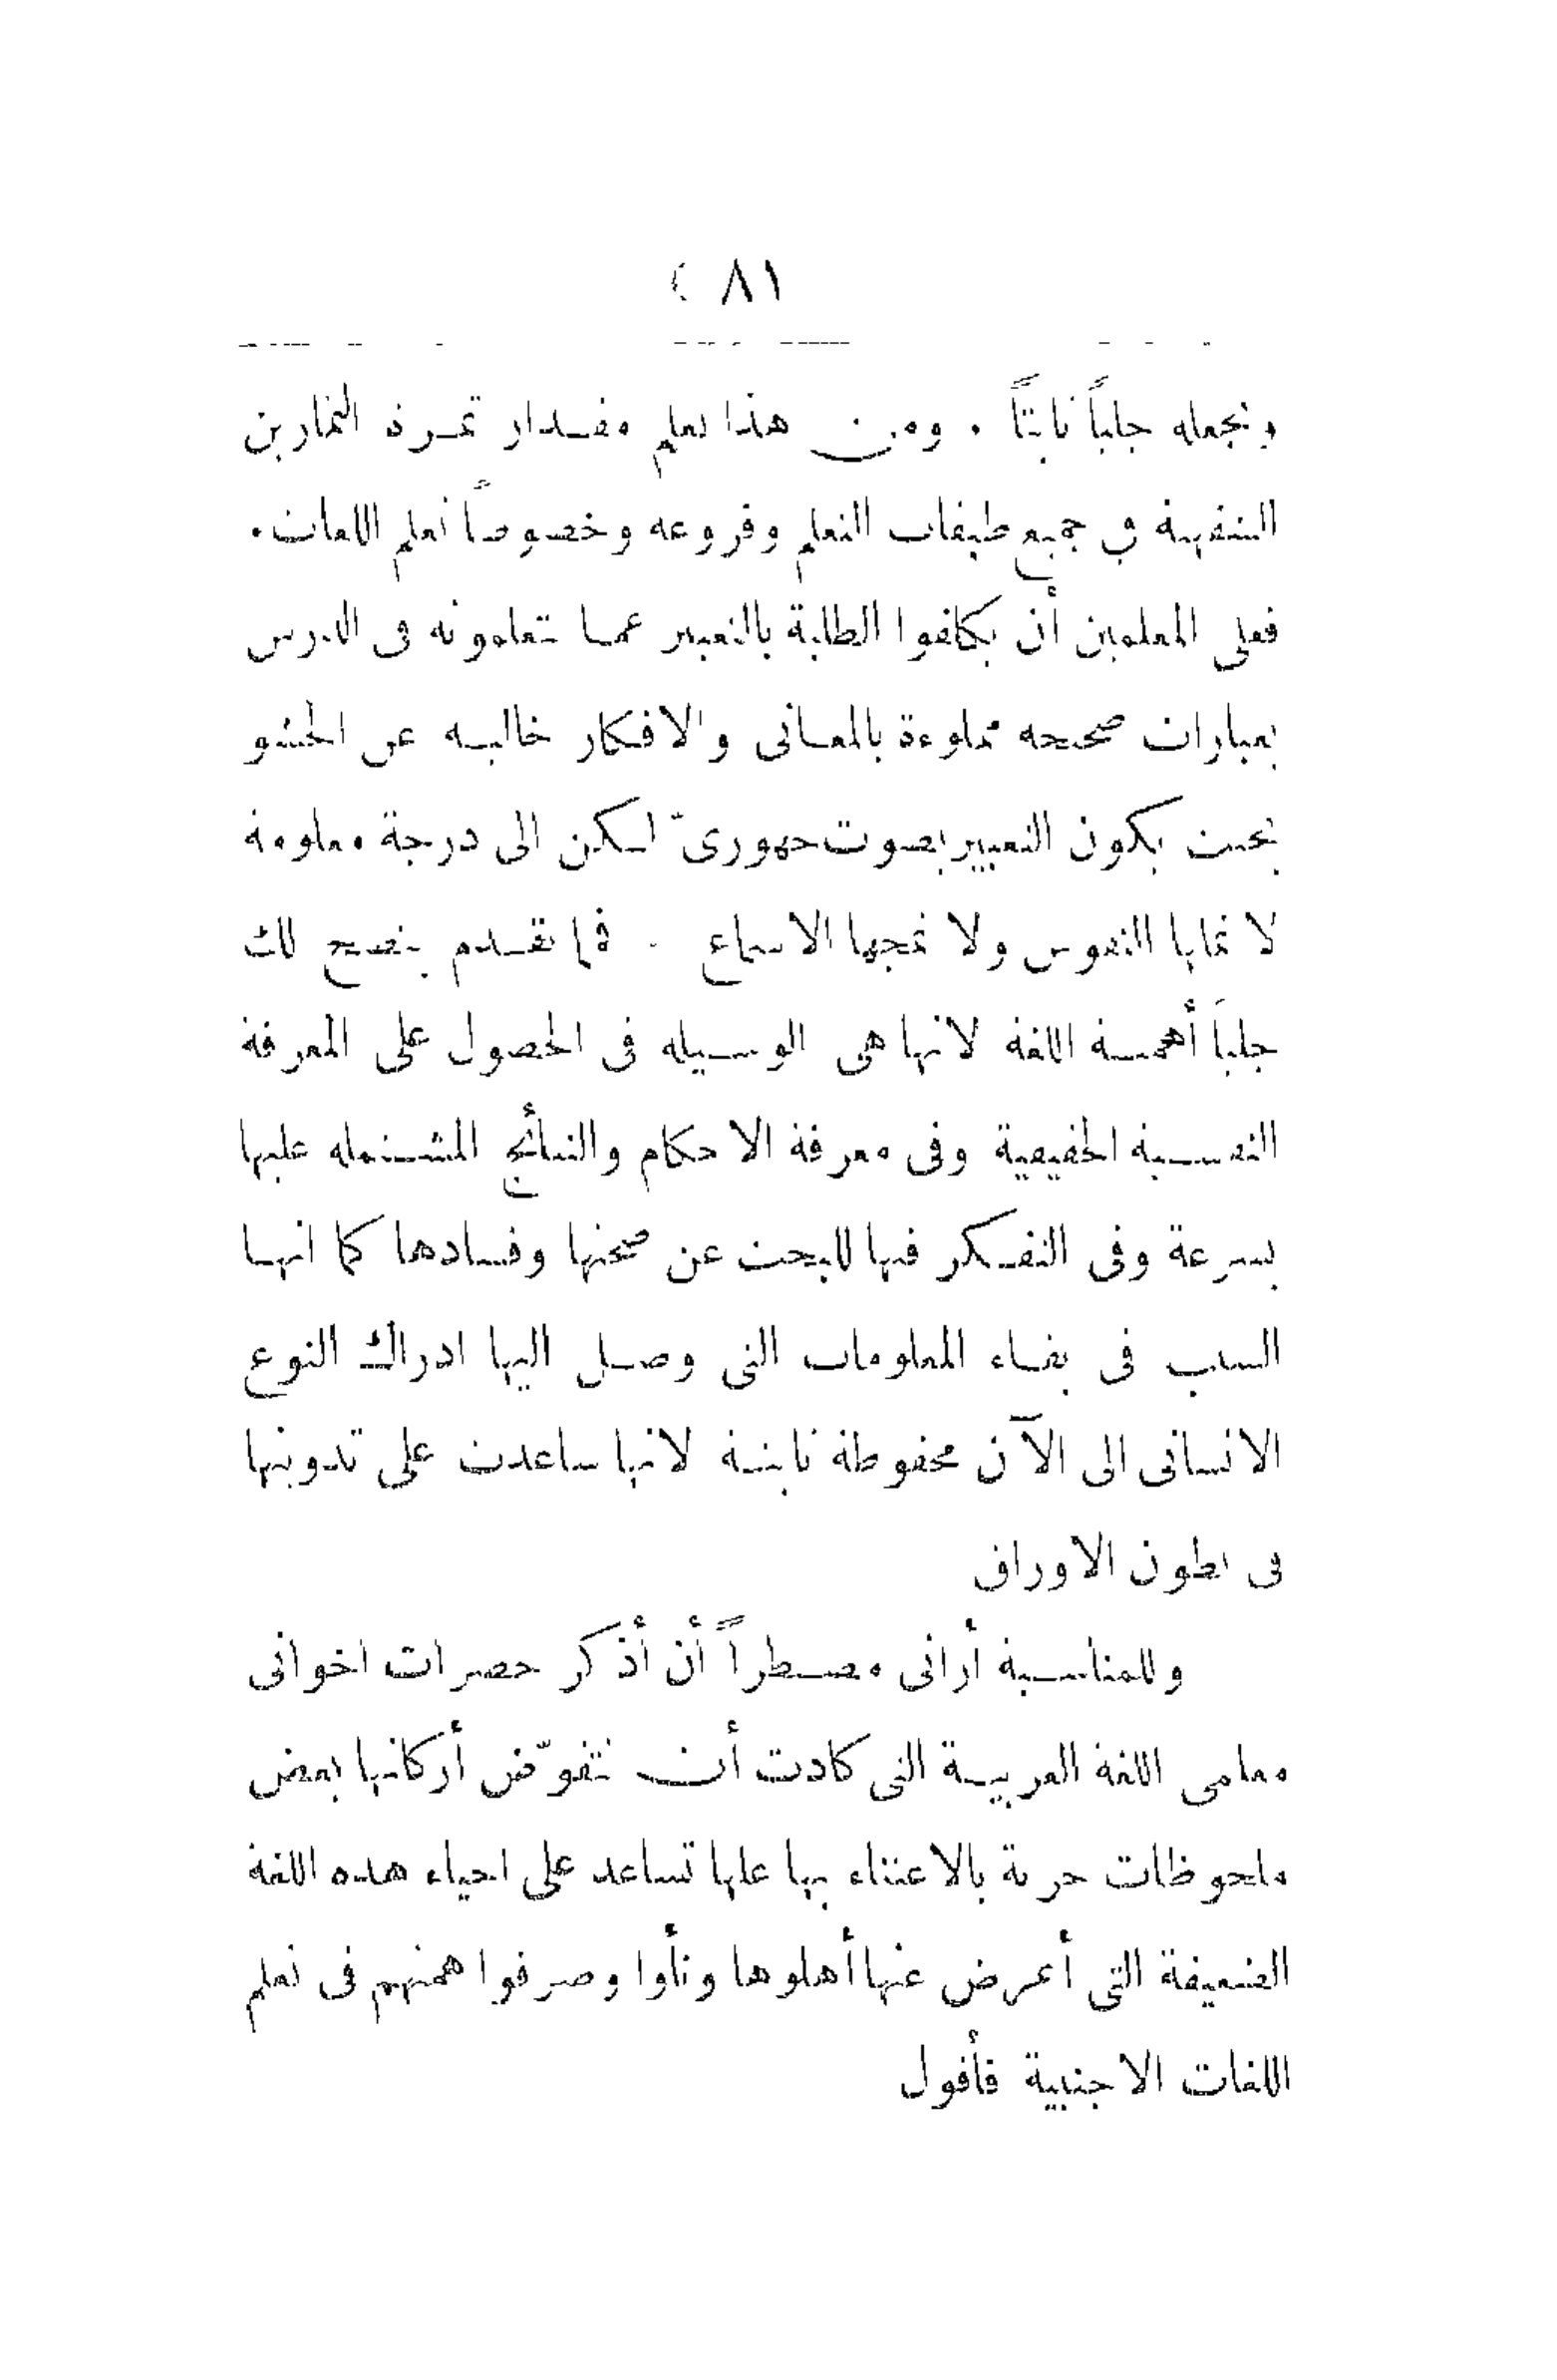 ( ٨١ )
وتجعله جلياً ثابتاً . ومن هذا تعلم مقدار ثمرة التمارين
الشفهية في جميع طبقات التعلم وفروعه وخصوصاً تعلم اللغات .
فعلى المعلمين أن يكلفوا الطلبة بالتعبير عما تعلمونه فى الدرس
بعبارات صحيحه مملوءة بالمعانى والافكار خاليه عن الحشو
بحيث يكون التعبير بصوت جهورىّ لكن الى درجة معلومة
لا تملها النفوس ولا تمجها الاسماع . فما تقدم يتضح لك
جلياً أهمية اللغة لانها هى الوسيله فى الحصول على المعرفة
النفسية الحقيقية وفى معرفة الاحكام والنتائج المشتمله عليها
بسرعة وفى التفكر فيها للبحث عن صحتها وفسادها كما انها
السبب فى بقاء المعلومات التى وصل اليها ادراك النوع
الانسانى الى الآن محفوظة ثابتة لانها ساعدت على تدوينها
فى بطون الاوراق
وللمناسبة أرانى مضطراً أن أذكر حضرات اخوانى
معلمى اللغة العربية التى كادت أن تتقوّض أركانها بعض
ملحوظات حرية بالاعتناء بها علها تساعد على احياء هذه اللغة
الضعيفة التى أعرض عنها أهلوها ونأوا وصرفوا همتهم فى تعلم
اللغات الاجنبية فأقول